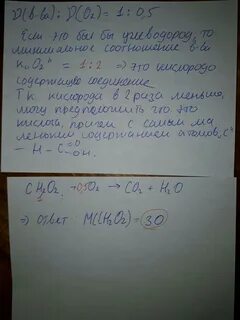 ν(в-ва) : ν(O₂) = 1 : 0,5
Если это был бы углеводород, то
минимальное соотношение в-ва
к O₂ = 1:2 ⇒ это кислородо
содержащее соединение
Т.к. кислорода в 2 раза меньше,
могу предположить что это
кислота, причем с самым ма
леньким содержанием атомов "C"
– H – C =O OH.
CH₂O₂ + 0,5O₂ → CO₂ + H₂O
1
⇒ ответ: M(CH₂O₂) = 30